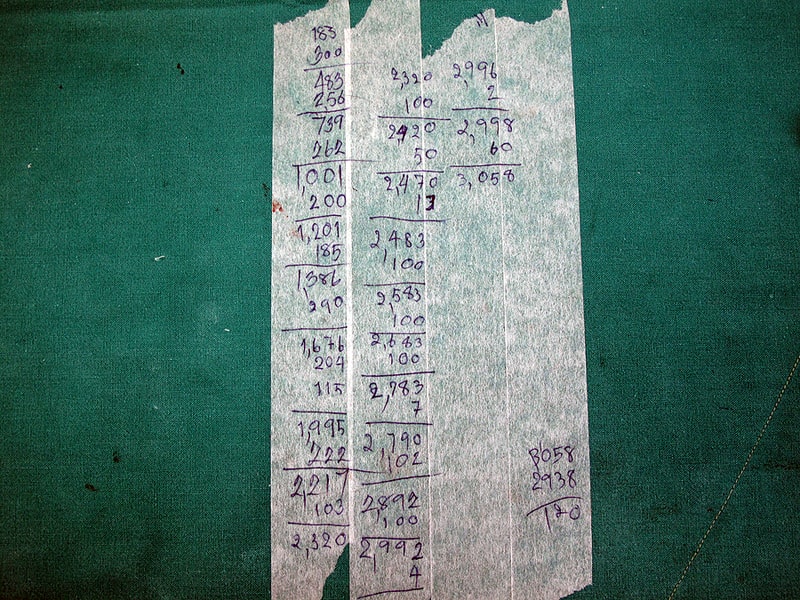 183
300
483
256
739
262
1,001
200
1,201
185
1,386
290
1,676
204
115
1,995
222
2,217
103
2,320
2,320
100
2,420
50
2,470
13
2,483
100
2,583
100
2,683
100
2,783
7
2,790
102
2,892
100
2,992
4
2,996
2
2,998
60
3,058
3058
2938
120